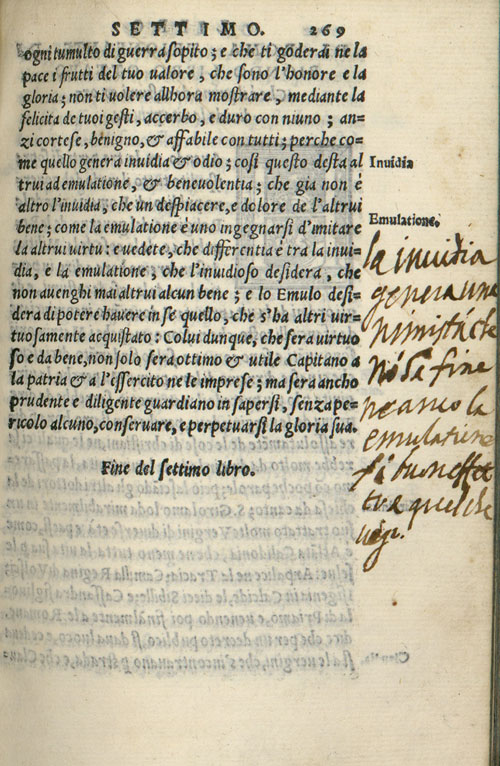 SETTIMO. 269
ogni tumulto di guerra sopito; e che ti goderai ne la
pace i frutti del tuo ualore, che sono l'honore e la
gloria; non ti uolere allhora mostrare, mediante la
felicita de tuoi gesti, accerbo, e duro con niuno; an-
zi cortese, benigno, & affabile con tutti; perche co-
me quello genera inuidia & odio; cosi questo desta al
trui ad emulatione, & beneuolentia; che gia non é
altro l'inuidia, che un despiacere, e dolore de l'altrui
bene; come la emulatione é uno ingegnarsi d'imitare
la altrui uirtu: e uedete, che differentia é tra la inui-
dia, e la emulatione, che l'inuidioso desidera, che
non auenghi mai altrui alcun bene; e lo Emulo desi-
dera di potere hauere in se quello, che s'ha altri uir-
tuosamente acquistato: Colui dunque, che sera uirtuo
so e da bene, non solo sera ottimo & utile Capitano a
la patria & a l'essercito ne le imprese; ma sera ancho
prudente e diligente guardiano in sapersi, senza pe-
ricolo alcuno, conseruare, e perpetuarsi la gloria sua.
Fine del settimo libro.
Inuidia
Emulatione.
la inuidia
genera una
nimistà che
nó há fine
ne anco la
emulatione
buon effet
quel che